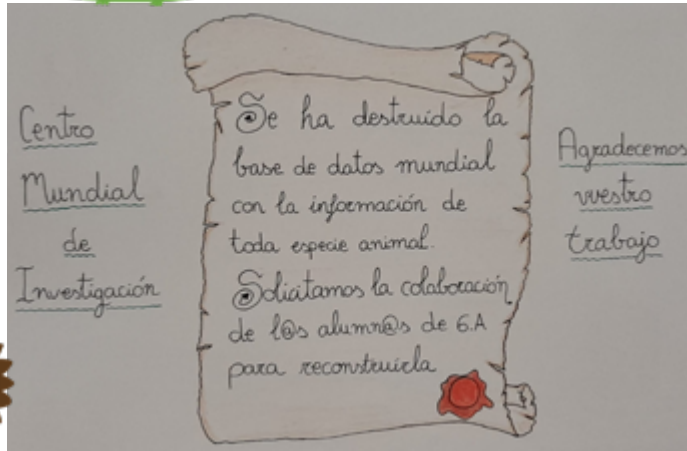 Centro
Mundial
de
Investigación
Se ha destruido la
base de datos mundial
con la información de
toda especie animal.
Solicitamos la colaboración
de l@s alumn@s de 6.A
para reconstruirla
Agradecemos
vuestro
trabajo